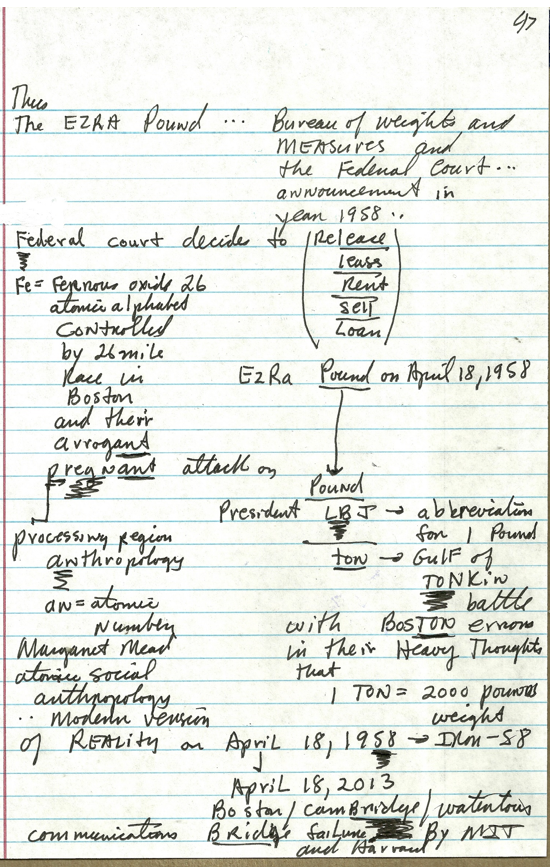 47
Thus
The EZRA Pound ... Bureau of weights and
MEASURES and
the Federal Court...
announcement in
year 1958 ..
Federal court decides to (Release
lease
Rent
sell
Loan)
Fe = Ferrous oxide 26
atomic alphabet
CONTROLLED
by 26 mile
Race in
Boston
and their
arrogant
pregnant attack on
EzRa Pound on April 18, 1958
Pound
President LBJ → abbreviation
for 1 Pound
TON → GulF of
TONKin
battle
with BosTON errors
in their Heavy Thoughts
that
1 TON = 2000 pounds
weight
processing region
anthropology
an = atomic
Number
Margaret Mead
atomic social
anthropology
.. Modern version
of REALITY on April 18, 1958 → IRON-58
April 18, 2013
Boston / CamBridge / watertown
communications BRidge failure By MIT
and Harvard